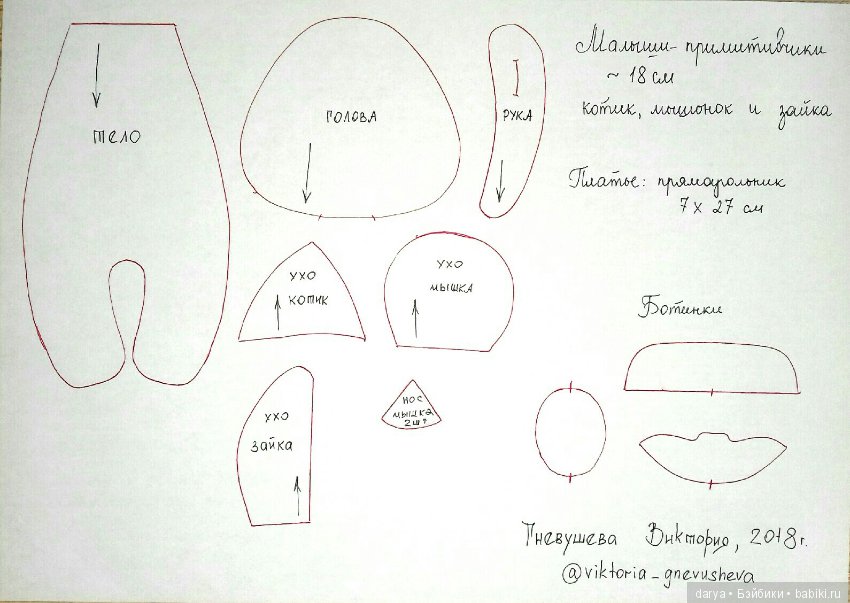 Малыши-примитивчики
~ 18 см
котик, мышонок и зайка
Платье: прямоугольник
7 х 27 см
тело
голова
рука
ухо
котик
ухо
мышка
ухо
зайка
нос
мышка
2 шт
Ботинки
Гневушева Виктория, 2018 г.
@viktoria_gnevusheva
darya • Бэйбики • babiki.ru